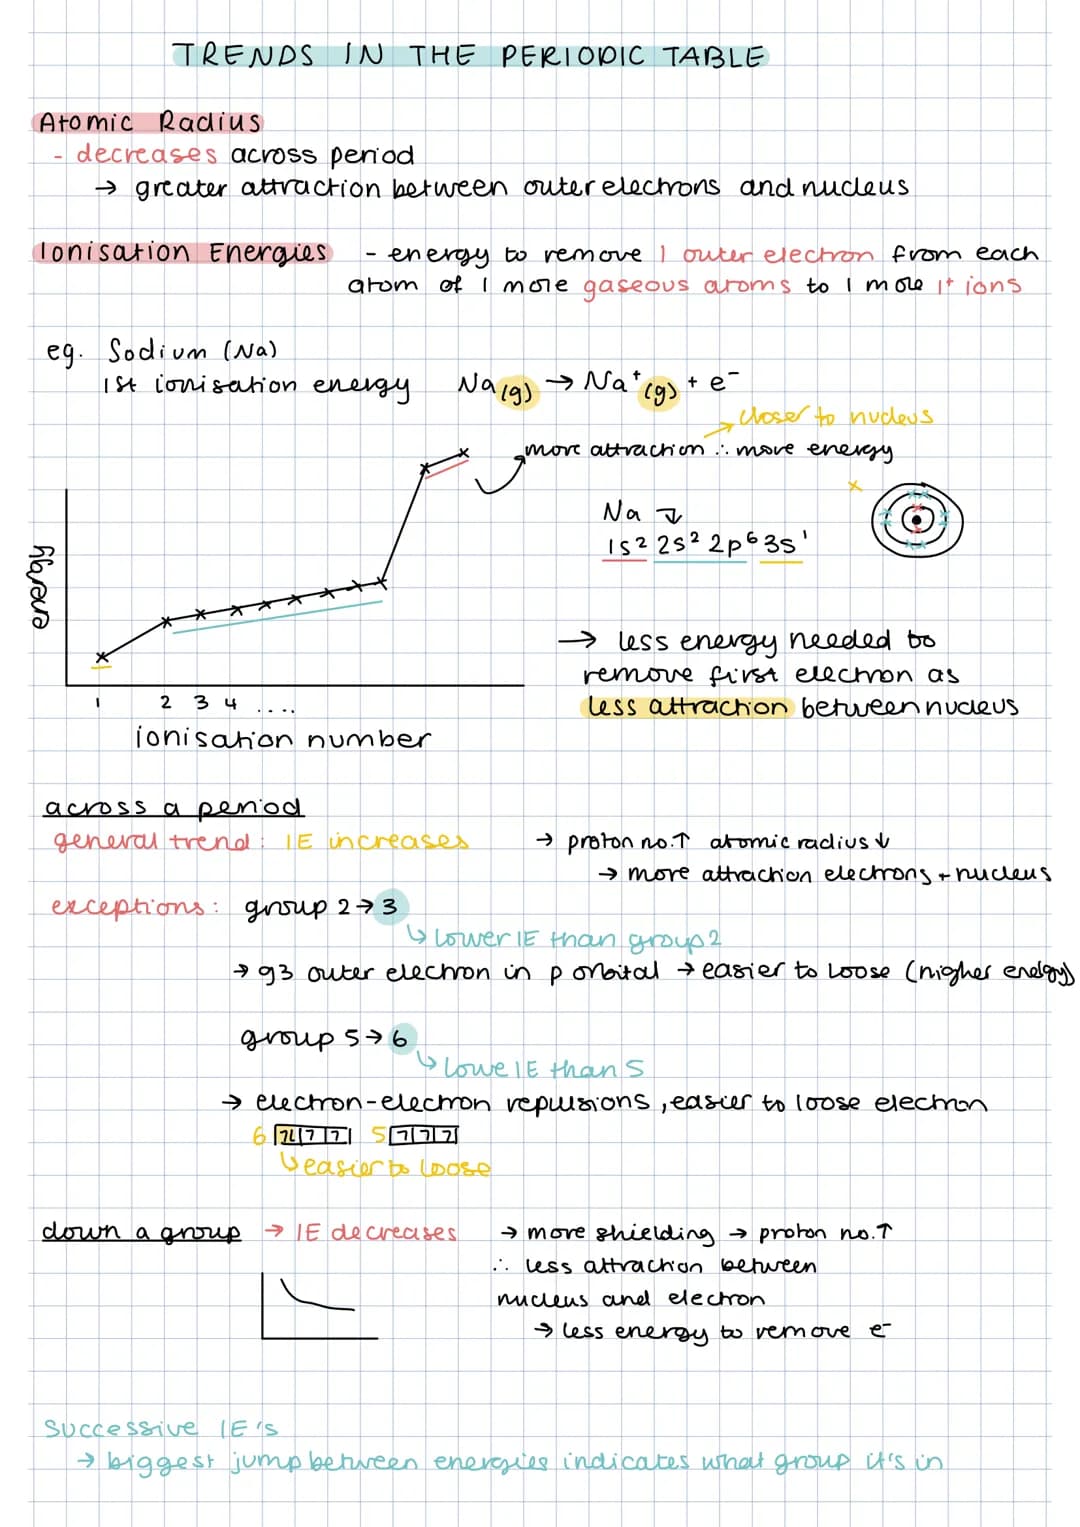 TRENDS IN THE PERIODIC TABLE
Atomic Radius
- decreases across period
→ greater attraction between outer electrons and nucleus
Ionisation Energies - energy to remove 1 outer electron from each
atom of 1 mole gaseous atoms to 1 mole 1+ ions
eg. Sodium (Na)
1st ionisation energy Na (g) → Na⁺ (g) + e⁻
closer to nucleus
more attraction ∴ more energy
Na
1s² 2s² 2p⁶ 3s¹
energy
→ less energy needed to
remove first electron as
less attraction between nucleus
1 2 3 4 ....
ionisation number
across a period
general trend: IE increases → proton no.↑ atomic radius ↓
→ more attraction electrons + nucleus
exceptions: group 2 → 3
↳ lower IE than group 2
→ g3 outer electron in p orbital → easier to loose (higher energy)
group 5 → 6
↳ lowe IE than 5
→ electron-electron repulsions, easier to loose electron
6 5
↳ easier to loose
down a group → IE decreases → more shielding → proton no.↑
∴ less attraction between
nucleus and electron
→ less energy to remove e⁻
Successive IE's
→ biggest jump between energies indicates what group it's in